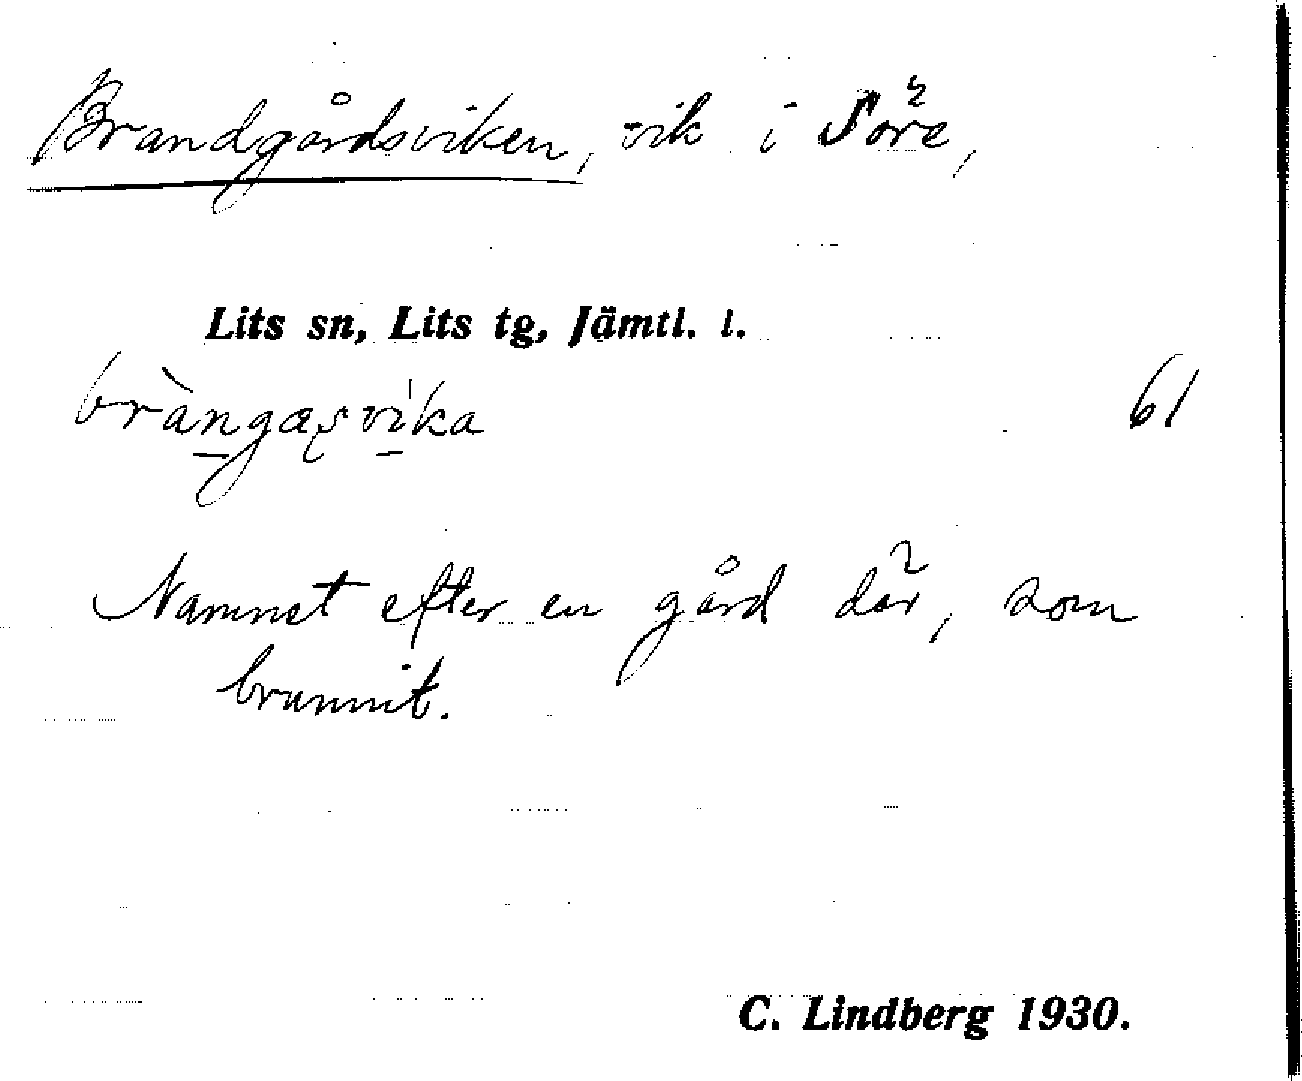 Brandgårdsviken, vik i Söre,
Lits sn, Lits tg, Jämtl. l.
bràngasvika 61
Namnet efter en gård där, som
brunnit.
C. Lindberg 1930.